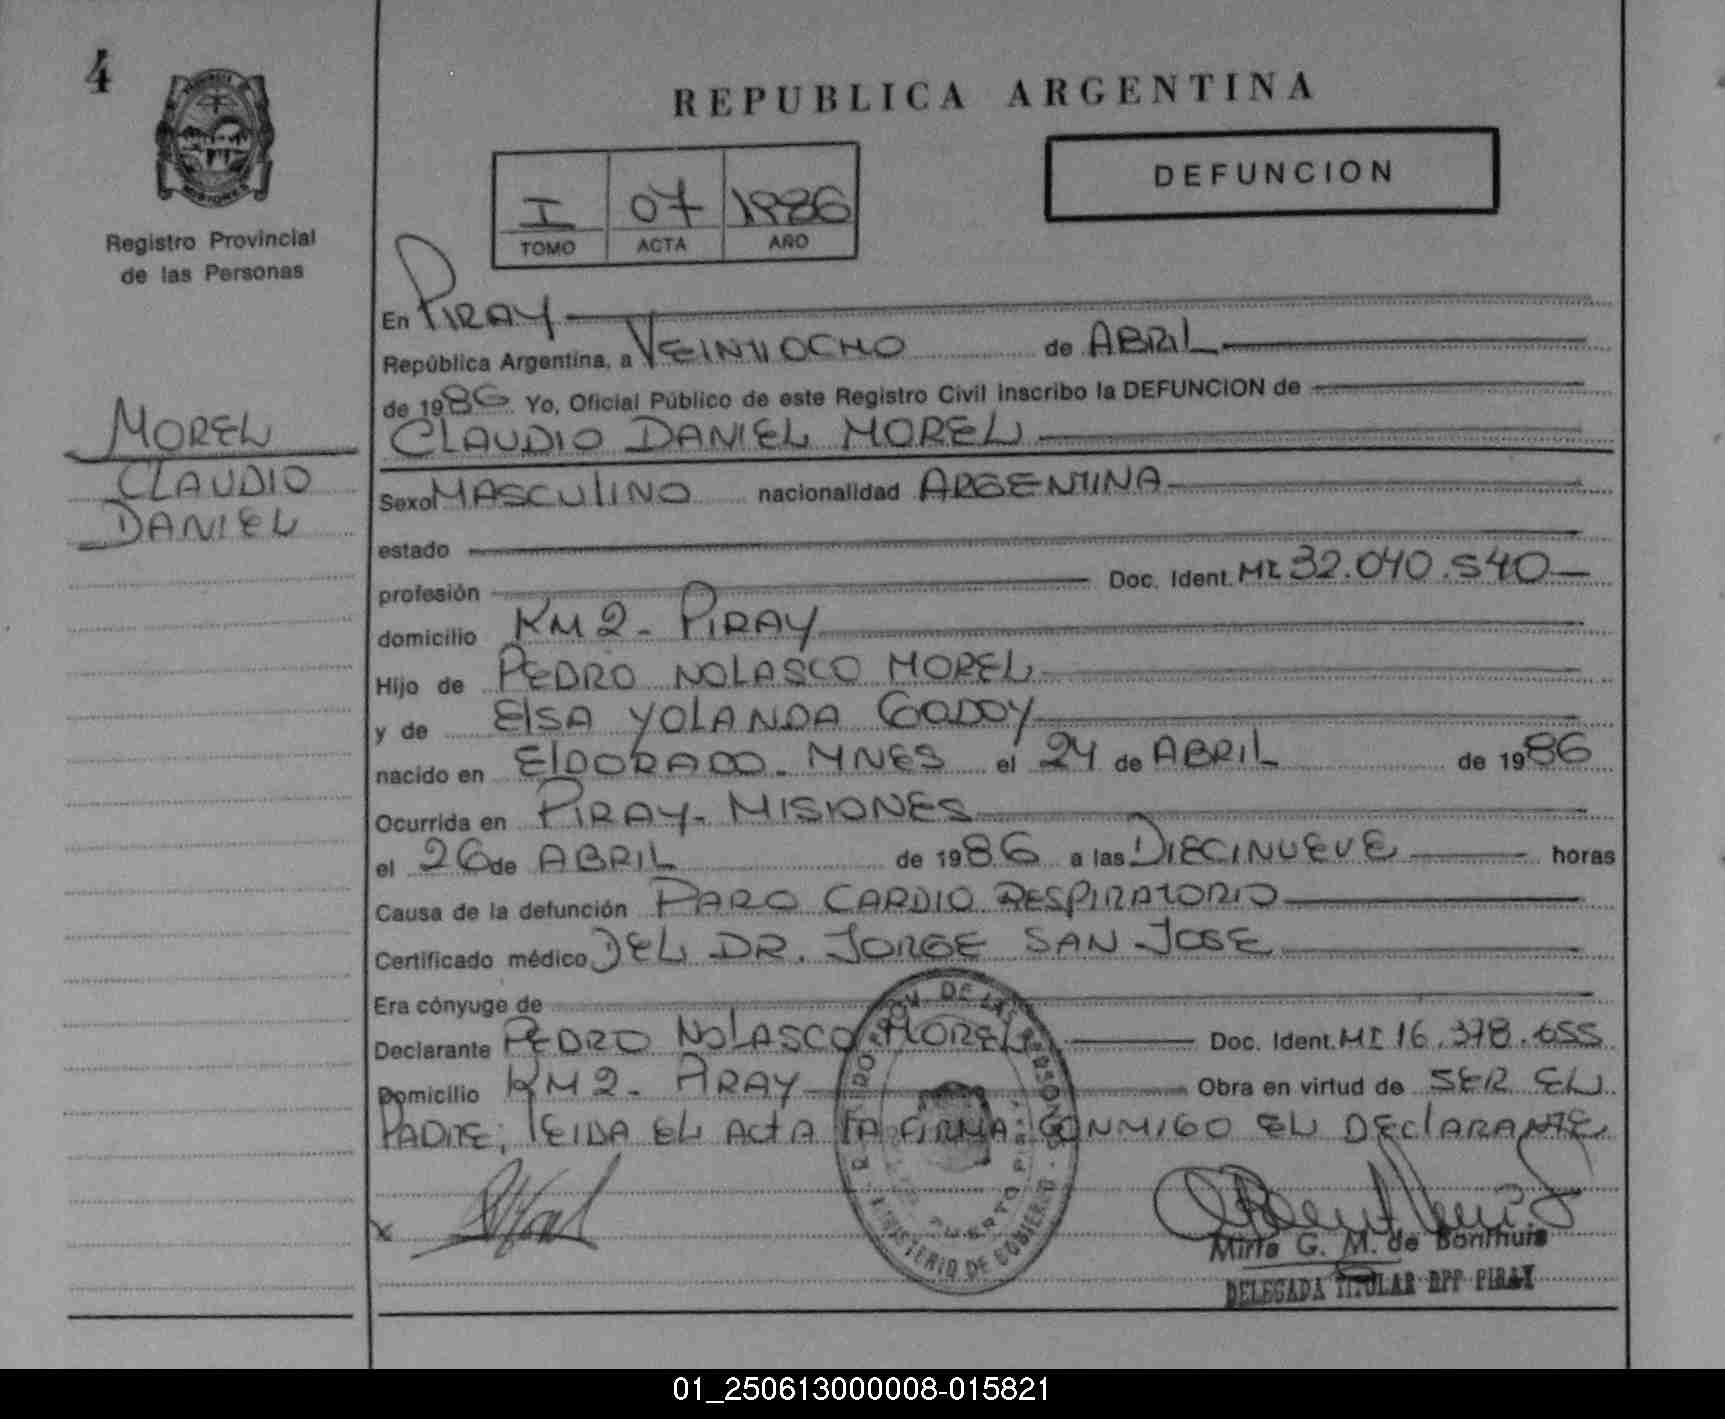 4
REPUBLICA ARGENTINA
DEFUNCION
I 07 1986
TOMO ACTA AÑO
Registro Provincial
de las Personas
MOREL
CLAUDIO
DANIEL
En PIRAY
República Argentina, a VEINTIOCHO de ABRIL
de 1986 Yo, Oficial Público de este Registro Civil inscribo la DEFUNCION de
CLAUDIO DANIEL MOREL
Sexo MASCULINO nacionalidad ARGENTINA
estado
profesión Doc. Ident. MI 32.040.540
domicilio KM 2 - PIRAY
Hijo de PEDRO NOLASCO MOREL
y de ElSA YOLANDA GODOY
nacido en ElDORADO - MNES el 24 de ABRIL de 1986
Ocurrida en PIRAY - MISIONES
el 26 de ABRIL de 1986 a las DIECINUEVE horas
Causa de la defunción PARO CARDIO RESPIRATORIO
Certificado médico DEL DR. JORGE SAN JOSE
Era cónyuge de
Declarante PEDRO NOLASCO MOREL Doc. Ident. MI 16.378.655
Domicilio KM 2 - PIRAY Obra en virtud de SER EL
PADRE; lEIDA EL ACTA LA FIRMA CONMIGO EL DEClARANTE
X
DE LAS PERSONAS
MINISTERIO DE GOBIERNO
PUERTO
Mirta G. M. de Bonthuis
DELEGADA TITULAR RPP PIRAY
01_250613000008-015821